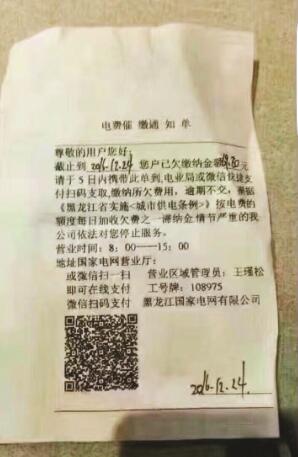 电费催缴通知单
尊敬的用户您好:
截止到2016.12.24您户已欠缴纳金额 元
请于5日内携带此单到,电业局或微信快捷支
付扫码支取,缴纳所欠费用,逾期不交,
《黑龙江省实施<城市供电条例>》按电费的
额度每日加收欠费之一滞纳金情节严重的我
公司依法对您停止服务。
营业时间:8:00—15:00
地址国家电网营业厅:
或微信扫一扫 营业区域管理员:王瑾松
即可在线支付 工号牌:108975
微信扫码支付 黑龙江国家电网有限公司
2016.12.24.